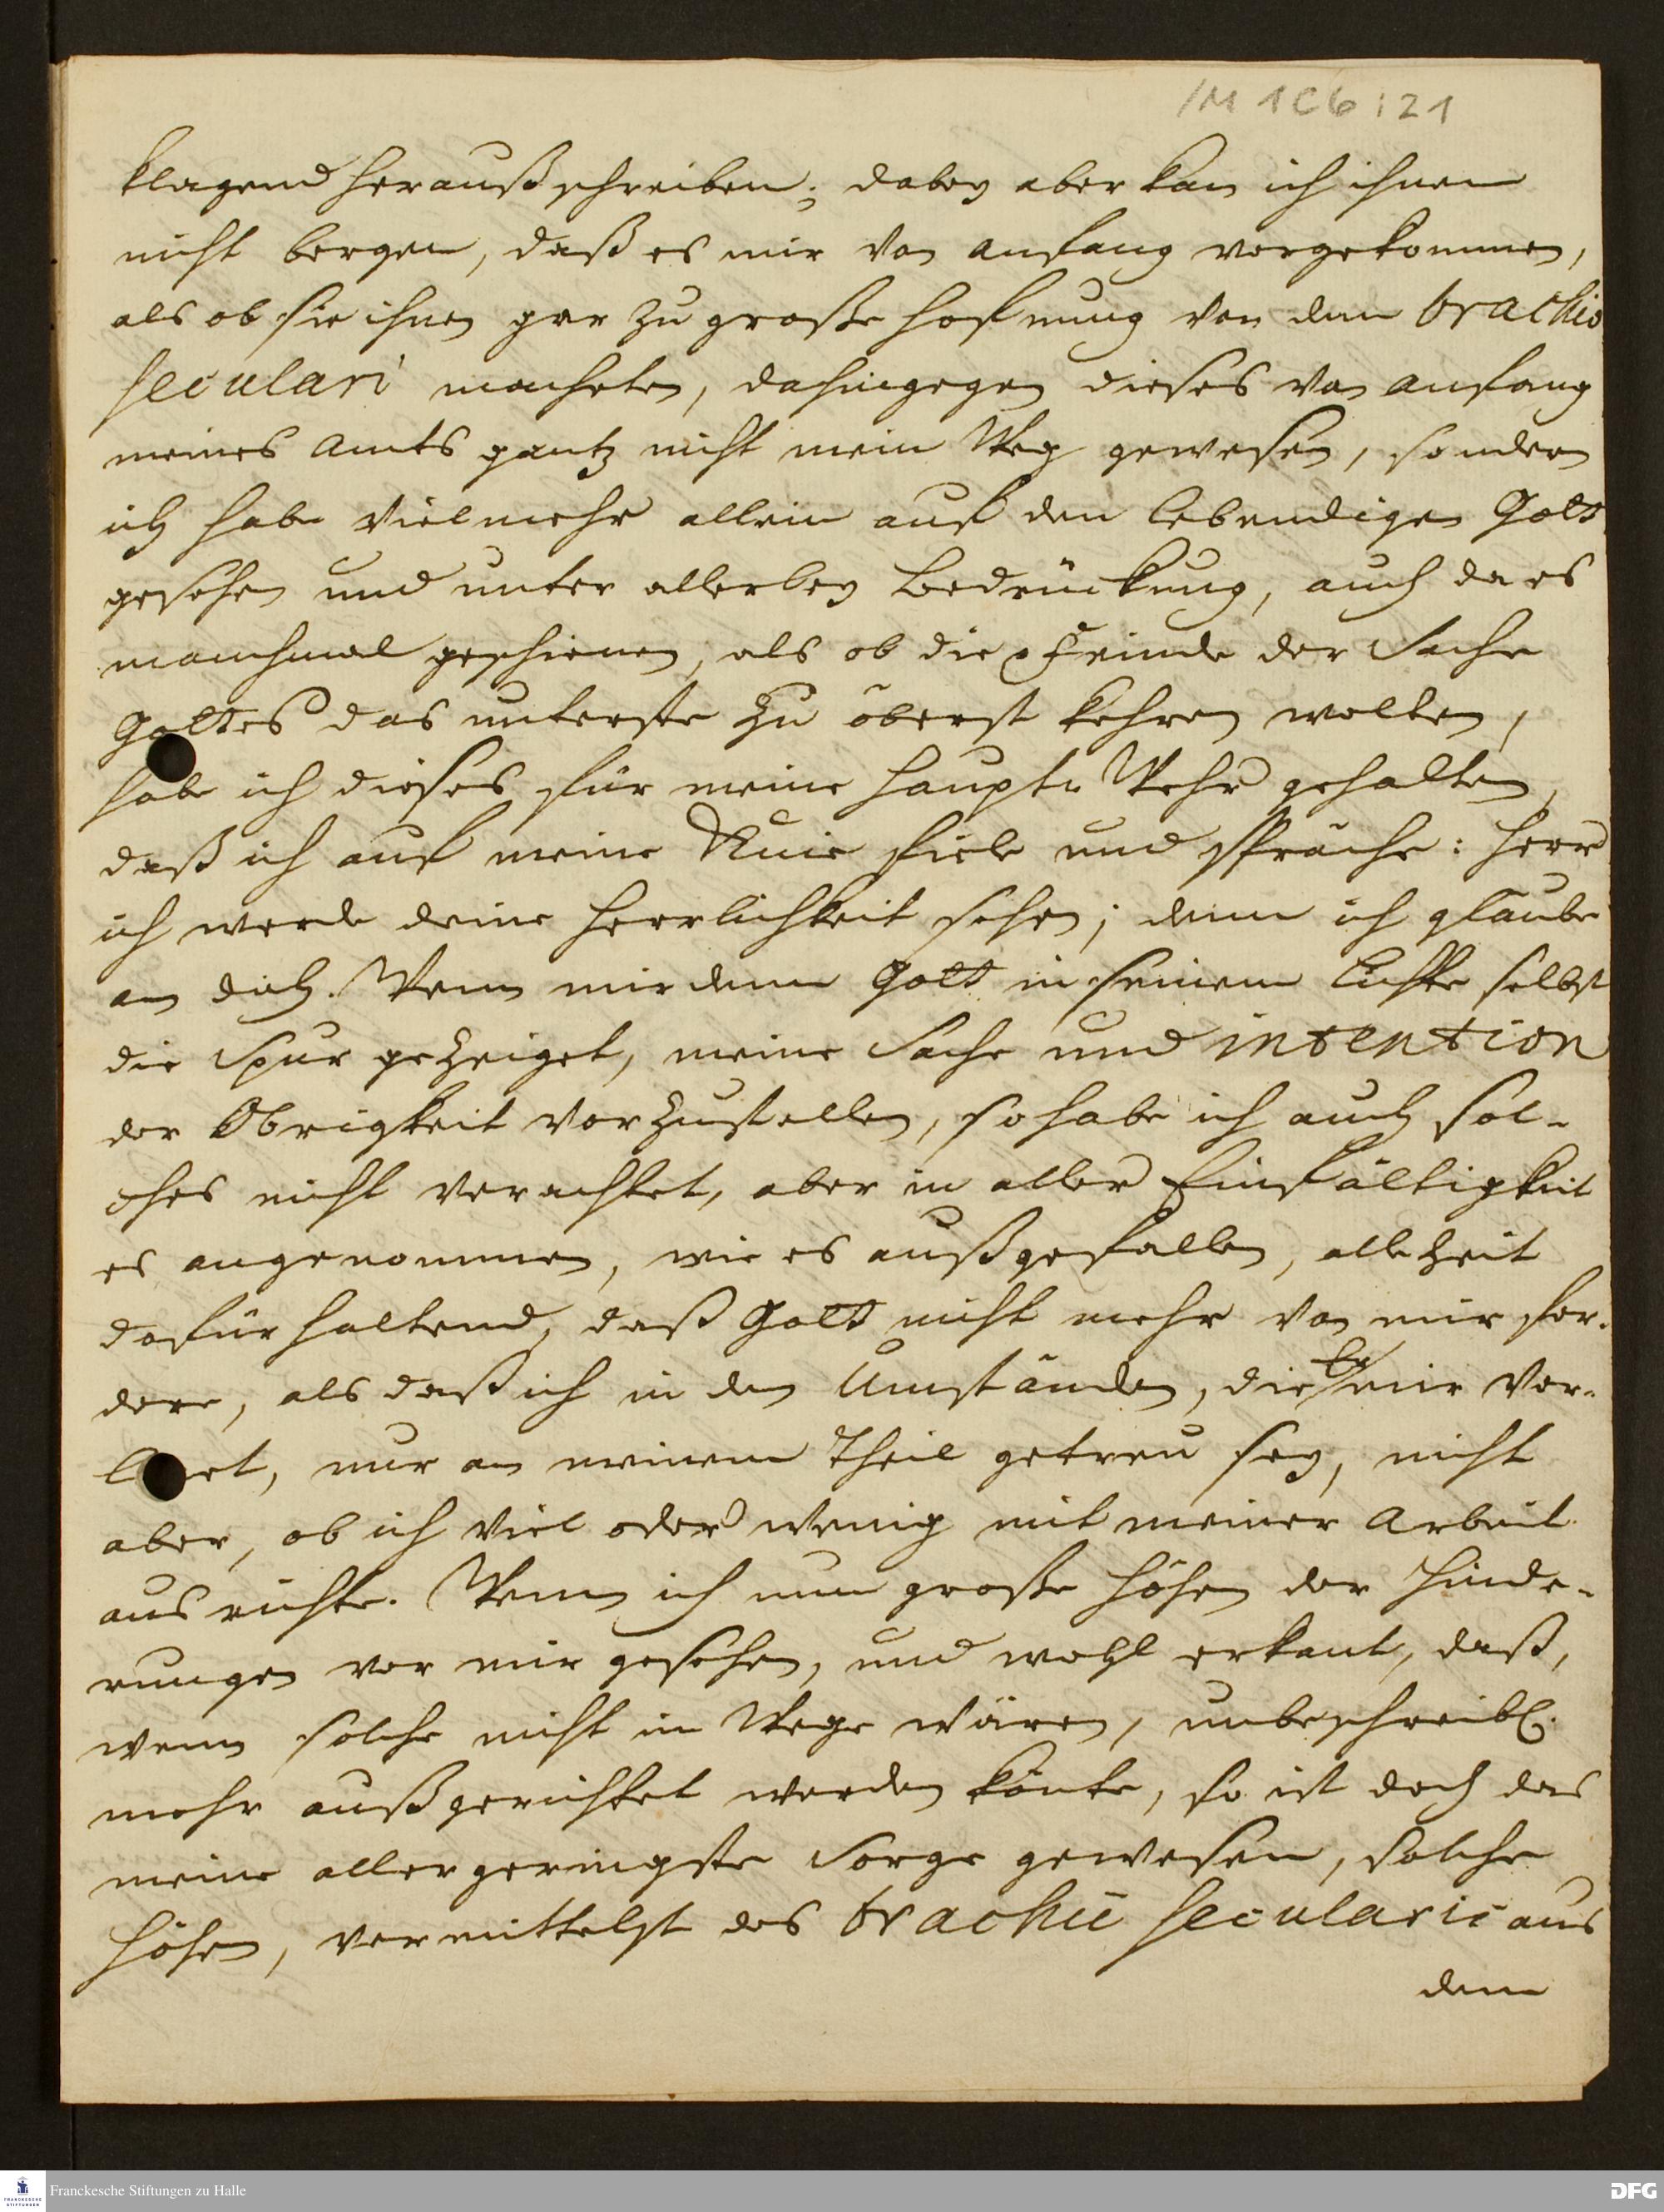 /M 1C6:21
klagend heraußschreiben; dabey aber kan ich ihnen
nicht bergen, daß es mir von anfang vorgekommen,
als ob sie ihnen gar zu große hofnung von dem brachio
seculari macheten, dahingegen dieses von anfang
meines Amts gantz nicht mein Weg gewesen, sondern
ich habe vielmehr allein auf den lebendigen Gott
gesehen und unter allerley Bedrückung, auch da es
manchmal geschienen, als ob die Feinde der Sache
Gottes das unterste zu öberst kehren wolten,
habe ich dieses für meine haupt-Wehr gehalten,
daß ich auf meine Knie fiele und spräche: Herr
ich werde deine Herrlichkeit sehen; denn ich glaube
an dich. Wenn mir denn Gott in seinem Lichte selbst
die Spur gezeiget, meine Sache und intention
der Obrigkeit vorzustellen, so habe ich auch sol-
ches nicht verachtet, aber in aller Einfältigkeit
es angenommen, wie es außgefallen, allezeit
dafür haltend, daß Gott nicht mehr von mir for-
dere, als daß ich in den Umständen, die Er mir vor-
leget, nur an meinem Theil getreu sey, nicht
aber, ob ich viel oder wenig mit meiner Arbeit
ausrichte. Wenn ich nun große Höhen der Hinde-
rungen vor mir gesehen, und wohl erkant, daß,
wenn solche nicht im Wege wären, unbeschreibl.
mehr außgerichtet werden könte, so ist doch das
meine allergeringste Sorge gewesen, solche
Höhen, vermittelst des brachii secularis aus
dem
Franckesche Stiftungen zu Halle
FRANCKESCHE STIFTUNGEN
DFG